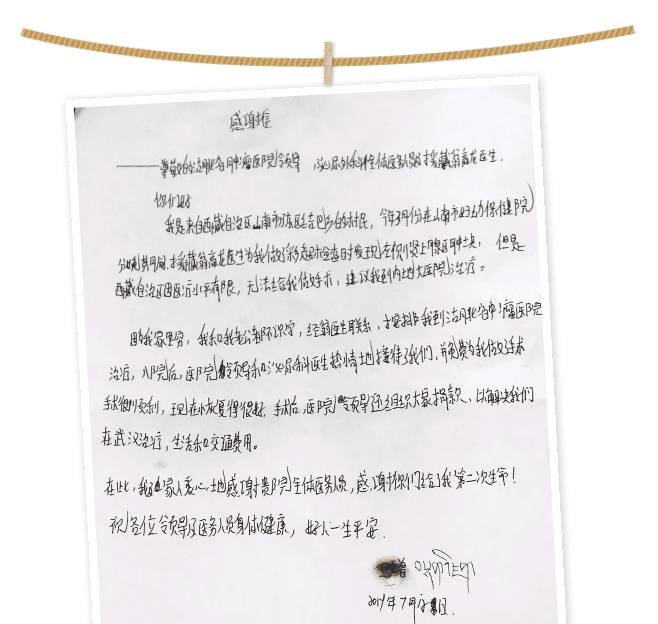 感谢信
——尊敬的湖北省肿瘤医院领导 泌尿外科全体医务人员及援藏翁育龙医生.
你们好
我是来自西藏自治区山南市 吉巴乡的村民,今年3月份在山南市妇幼保健院
分娩期间,援藏翁育龙医生为我做了彩超时检查时发现左侧肾上腺区肿块, 但是
西藏自治区因医疗水平有限,无法给我做手术,建议我到内地大医院治疗。
因我家里穷,我和我老公都不识字,经翁医生联系,于 我到湖北省肿瘤医院
治疗,入院后,医院领导和泌尿科医生热情地接待了我们,并免费为我做了手术
手术很顺利,现在恢复得很好.手术后,医院领导还组织大家捐款,以解决我们
在武汉治疗,生活和交通费用。
在此,我 家人衷心地感谢贵院全体医务人员,感谢你们给了我第二次生命!
祝各位领导及医务人员身体健康,好人一生平安.
2019年7月 日.